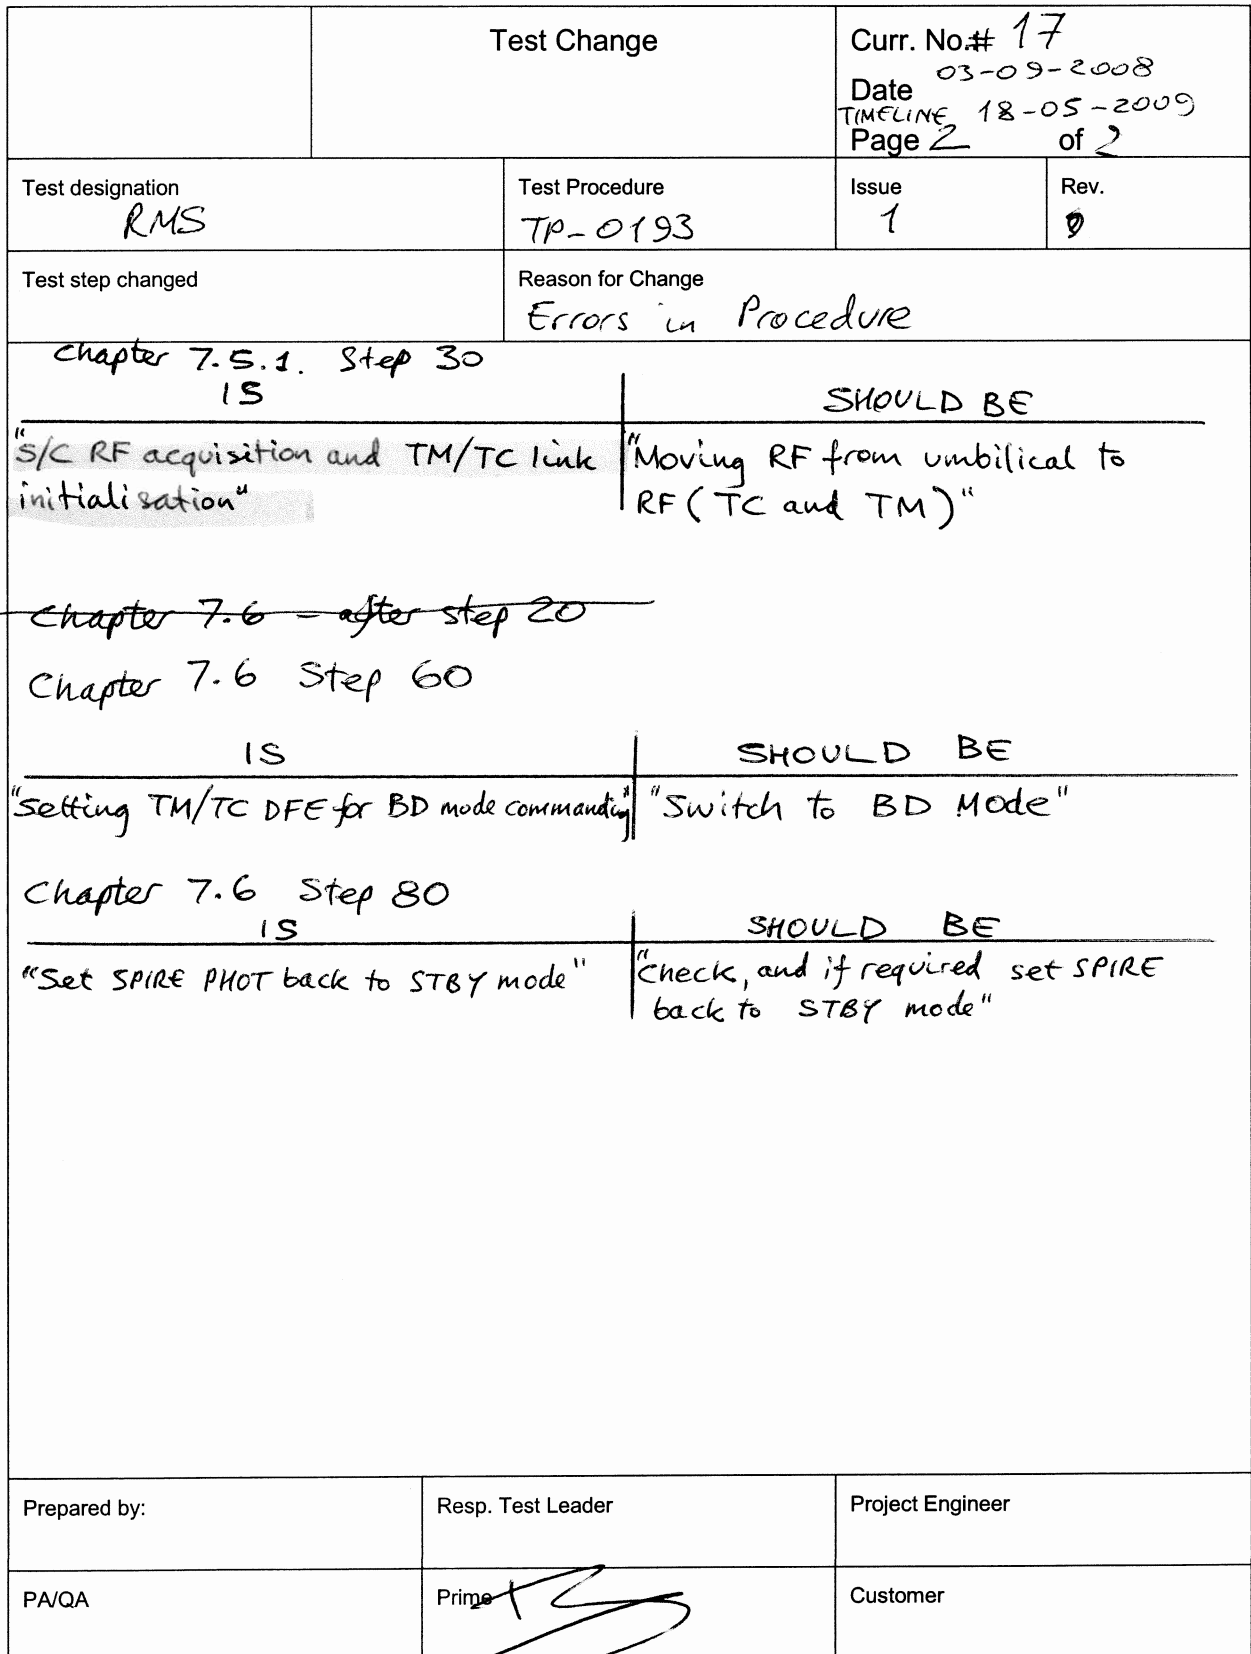 Test Change
Curr. No.# 17
03-09-2008
Date
TIMELINE 18-05-2009
Page 2 of 2
Test designation
RMS
Test Procedure
TP-0193
Issue
1
Rev.
Test step changed
Reason for Change
Errors in Procedure
Chapter 7.5.1. Step 30
IS
SHOULD BE
"S/C RF acquisition and TM/TC link
initialisation"
"Moving RF from umbilical to
RF (TC and TM)"
Chapter 7.6 - after step 20
Chapter 7.6 Step 60
IS
SHOULD BE
"Setting TM/TC DFE for BD mode commanding"
"Switch to BD Mode"
Chapter 7.6 Step 80
IS
SHOULD BE
"Set SPIRE PHOT back to STBY mode"
"Check, and if required set SPIRE
back to STBY mode"
Prepared by:
Resp. Test Leader
Project Engineer
PA/QA
Prime
Customer